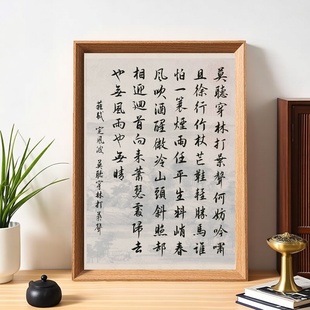 莫聽穿林打葉聲何妨吟嘯
且徐行竹杖芒鞋輕勝馬誰
怕一蓑煙雨任平生料峭春
風吹酒醒微冷山頭斜照却
相迎迴首向來蕭瑟處歸去
也無風雨也無晴
蘇軾 定風波 莫聽穿林打葉聲